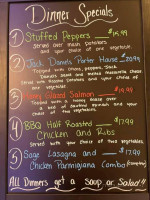 Dinner Specials
1 Stuffed Peppers $15.99
Served over mash potatoes
and your choice of one vegetable.
2 Jack Daniels Porter House $20.99
Topped with onions, peppers, Jack
Daniels sauce and melted mozzarella cheese
Served with roasted potatoes and your choice of
one vegetable.
3 Glazed Salmon $19.99
Topped with a honey glaze over
a bed of sauteed spinach and your
choice of one side.
4 BBQ Half Roasted $17.99
Chicken and Ribs
Served with your choice of two vegetables.
5 Lasagna and $17.99
Chicken Parmigiana Combo
All Dinners get a Soup or Salad!!